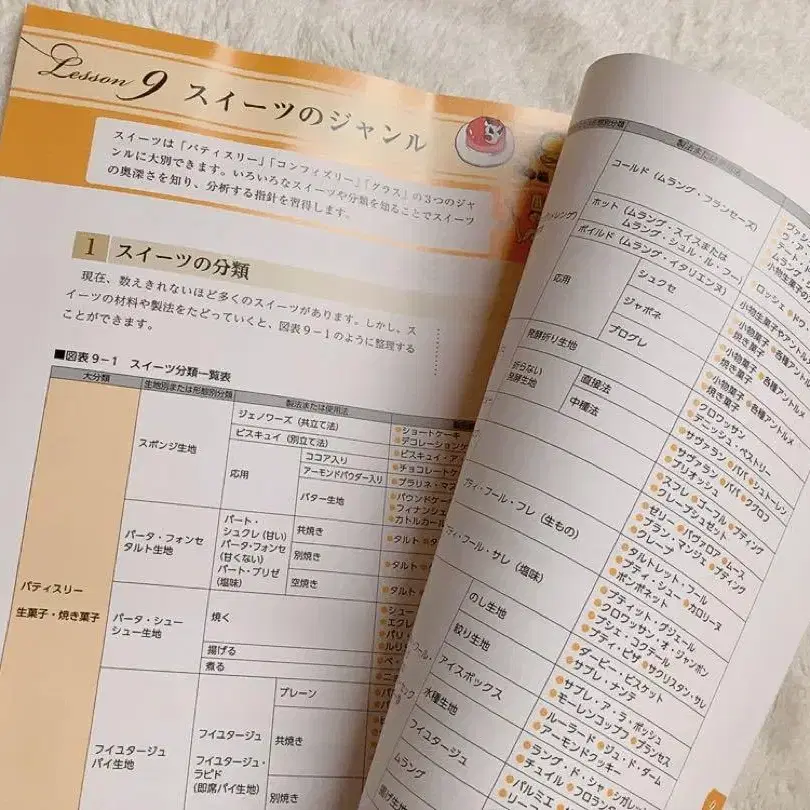 Lesson 9 スイーツのジャンル
スイーツは「パティスリー」「コンフィズリー」「グラス」の3つのジャ
ンルに大別できます。いろいろなスイーツや分類を知ることでスイーツ
の奥深さを知り、分析する指針を習得します。
1 スイーツの分類
現在、数えきれないほど多くのスイーツがあります。しかし、ス
イーツの材料や製法をたどっていくと、図表9-1のように整理する
ことができます。
■図表9-1 スイーツ分類一覧表
大分類 生地別または形態別分類 製法または使用法
パティスリー
生菓子・焼き菓子
スポンジ生地
ジェノワーズ(共立て法)
●ショートケーキ
●デコレーション
ビスキュイ(別立て法)
●ビスキュイ・ア
応用
ココア入り
●チョコレート
アーモンドパウダー入り
●プラリネ・マ
バター生地
●パウンドケー
●フィナンシェ
●カトルカール
パータ・フォンセ
タルト生地
パート・
シュクレ(甘い)
パータ・フォンセ
(甘くない)
パート・ブリゼ
(塩味)
共焼き
●タルト
別焼き
●タルト
空焼き
●タルト
パータ・シュー
シュー生地
焼く
●シュー
●エクレ
●パリ
揚げる
煮る
フイユタージュ
パイ生地
フイユタージュ
フイユタージュ・
ラピド
(即席パイ生地)
プレーン
共焼き
別焼き
製法または使用法
コールド(ムラング・フランセーズ)
ホット(ムラング・スイスまたは
ムラング・シュル・ル・フー)
ボイルド(ムラング・イタリエンヌ)
応用
シュクセ
ジャポネ
プログレ
●ロッシェ
小物生菓子やアントルメ
●小物菓子 ●各種アントルメ
焼き菓子
●小物菓子 ●各種アントルメ
焼き菓子
●小物菓子 ●各種アントルメ
焼き菓子
発酵折り生地
●クロワッサン
●デニッシュ・ペストリー
折らない
発酵生地
直接法
●サヴァラン ●ババ ●シュトーレン
中種法
●サヴァラン ●ババ ●クグロフ
●ブリオッシュ
●スフレ ●ゴーフル ●プディング
●クレープシュゼット
●ゼリー ●バヴァロア ●ムース
●ブラン・マンジェ ●プディング
●クレープ
プティ・フール・フレ(生もの)
●タルトレット・フール
●プティ・シュー ●カロリーヌ
●ポンポネット
ティ・フール・サレ(塩味)
●プティット・グジェール
●クロワッサン・オ・ジャンボン
●ブシェ・コクテール
●プティ・ピザ ●サクリスタン・サレ
のし生地
●ダービー・ビスケット
●サブレ・ナンテ
絞り生地
●サブレ・ア・ラ・ポッシュ
●モーレンコップフ ●プランセス
アイスボックス
●ルーラード ●ジュ・ド・ダーム
●アーモンドクッキー
水種生地
●ラング・ド・シャ
●チュイル
フイユタージュ
●パルミエ
ムラング
揚げ生地